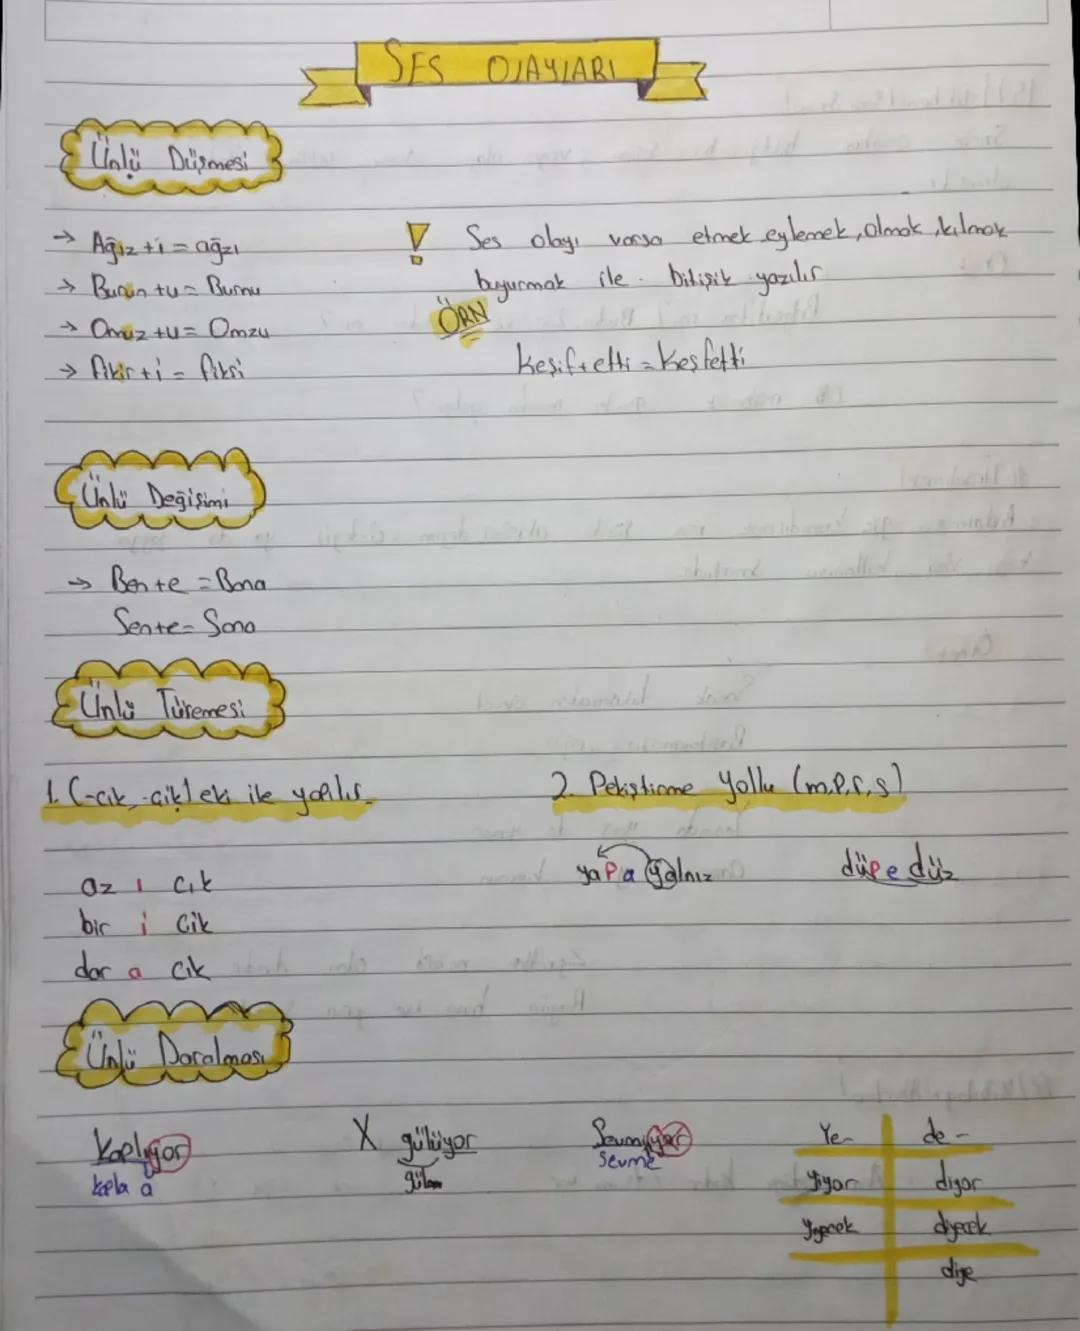 SES OLAYLARI
Ünlü Düşmesi
→ Ağız+ı = ağzı
→ Burun+u = Burnu
→ Omuz+u = Omzu
→ fikir+i = fikri
! Ses olayı varsa etmek, eylemek, olmak, kılmak
buyurmak ile bitişik yazılır
ÖRN
Keşif+etti = Keşfetti
Ünlü Değişimi
→ Ben+e = Bana
Sen+e = Sana
Ünlü Türemesi
1. (-cık, -cik) eki ile yapılır.
2. Pekiştirme Yollu (m,p,r,s)
az ı cık
bir i cik
dar a cık
yapayalnız
düpedüz
Ünlü Daralması
Kaplıyor
kapla a
X gülüyor
gül
Sevmiyor
sevme
Ye- de-
yiyor diyor
Yiyecek diyecek
diye